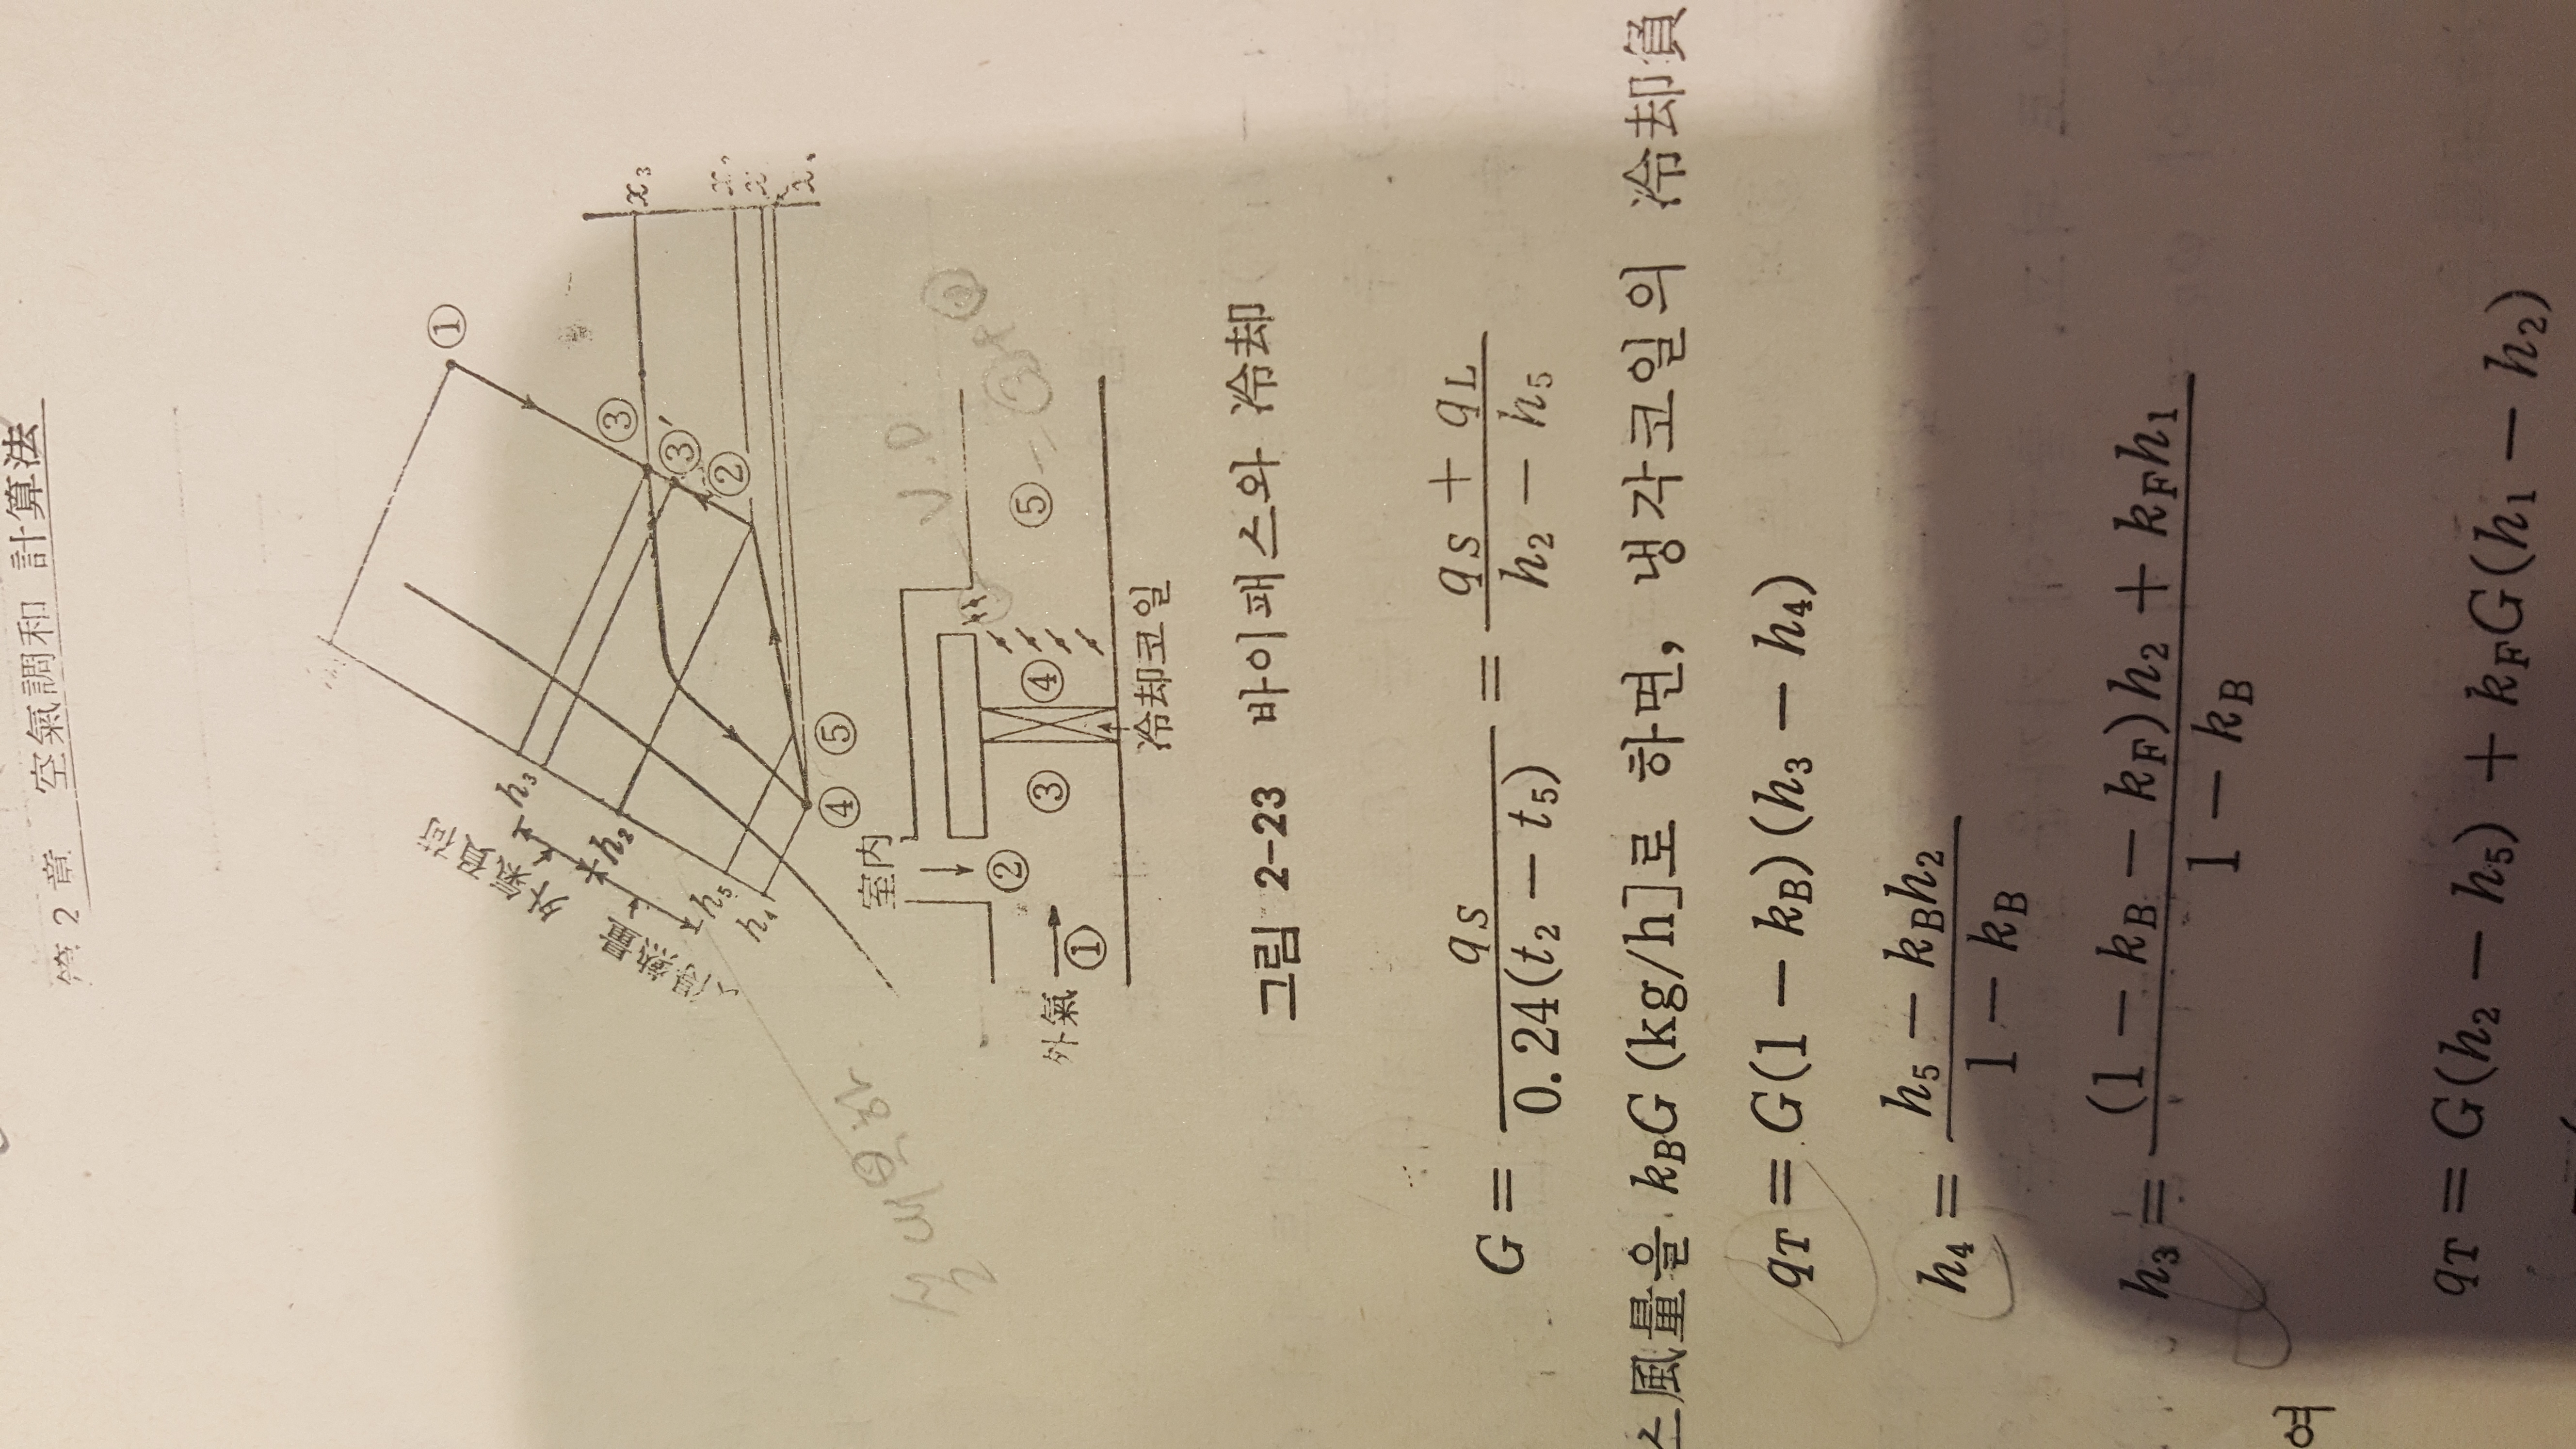 第 2 章 空氣調和 計算法
①
③
③′
②
x₃
h₃
h₂
h₅
h₄
外氣負荷
④ ⑤
室内
②
外氣
①
③
④
⑤
冷却코일
그림 2-23 바이패스와 冷却
G = qS / 0.24(t₂ − t₅) = (qS + qL) / (h₂ − h₅)
스風量을 kBG (kg/h]로 하면, 냉각코일의 冷却負
qT = G(1 − kB)(h₃ − h₄)
h₄ = (h₅ − kBh₂) / (1 − kB)
h₃ = ((1 − kB − kF)h₂ + kFh₁) / (1 − kB)
여
qT = G(h₂ − h₅) + kFG(h₁ − h₂)